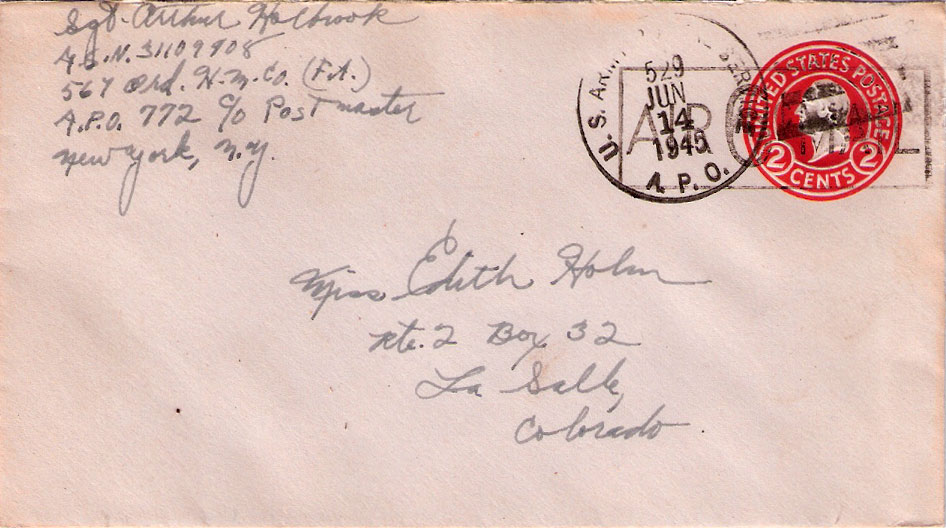 Sgt. Arthur Holbrook
A.S.N. 31109908
567 Ord. H.M. Co. (F.A.)
A.P.O. 772 c/o Postmaster
New York, N.Y.
U.S. ARMY POSTAL SERVICE
529
JUN
14
1945
A.P.O.
AIR MAIL
UNITED STATES POSTAGE
2 CENTS 2
Miss Edith Holm
Rte. 2 Box 32
La Salle,
Colorado